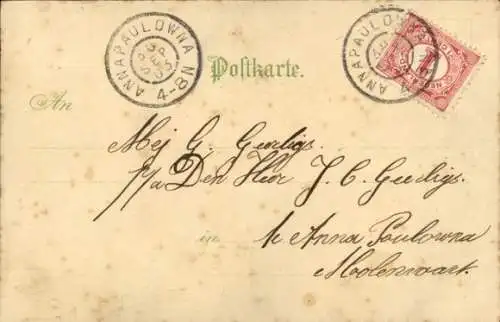 ANNAPAULOWNA
SEP
4-8N
Postkarte.
ANNAPAULOWNA
An
Mej G. Geerligs.
p/a Den Heer J. C. Geerligs.
in
te Anna Paulowna
Molenvaart.